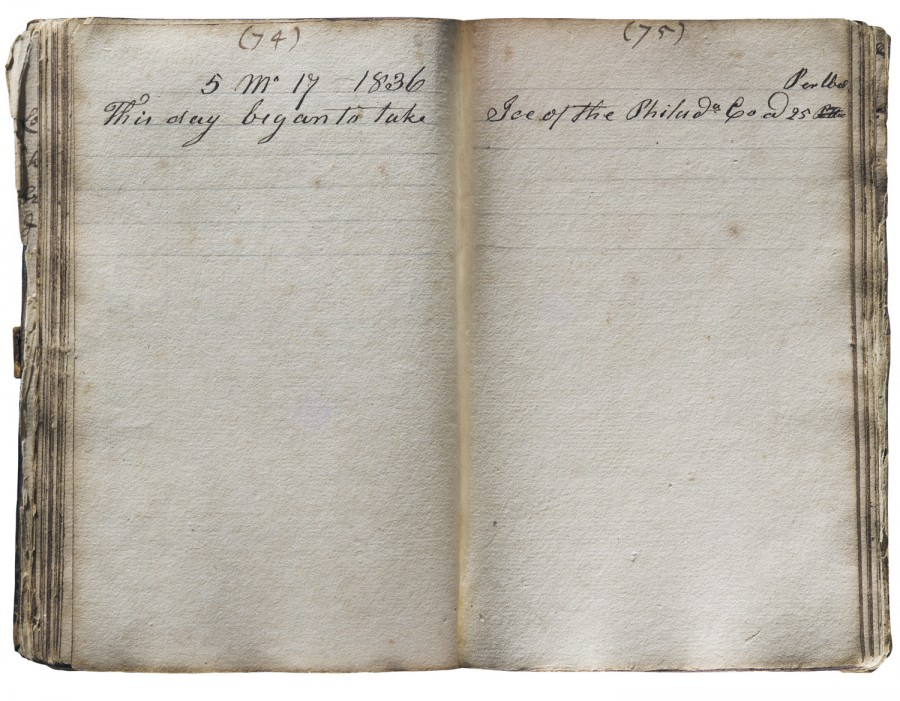 (74)
5 Mo 17 1836
This day began to take
(75)
Ice of the Philada Co a 25